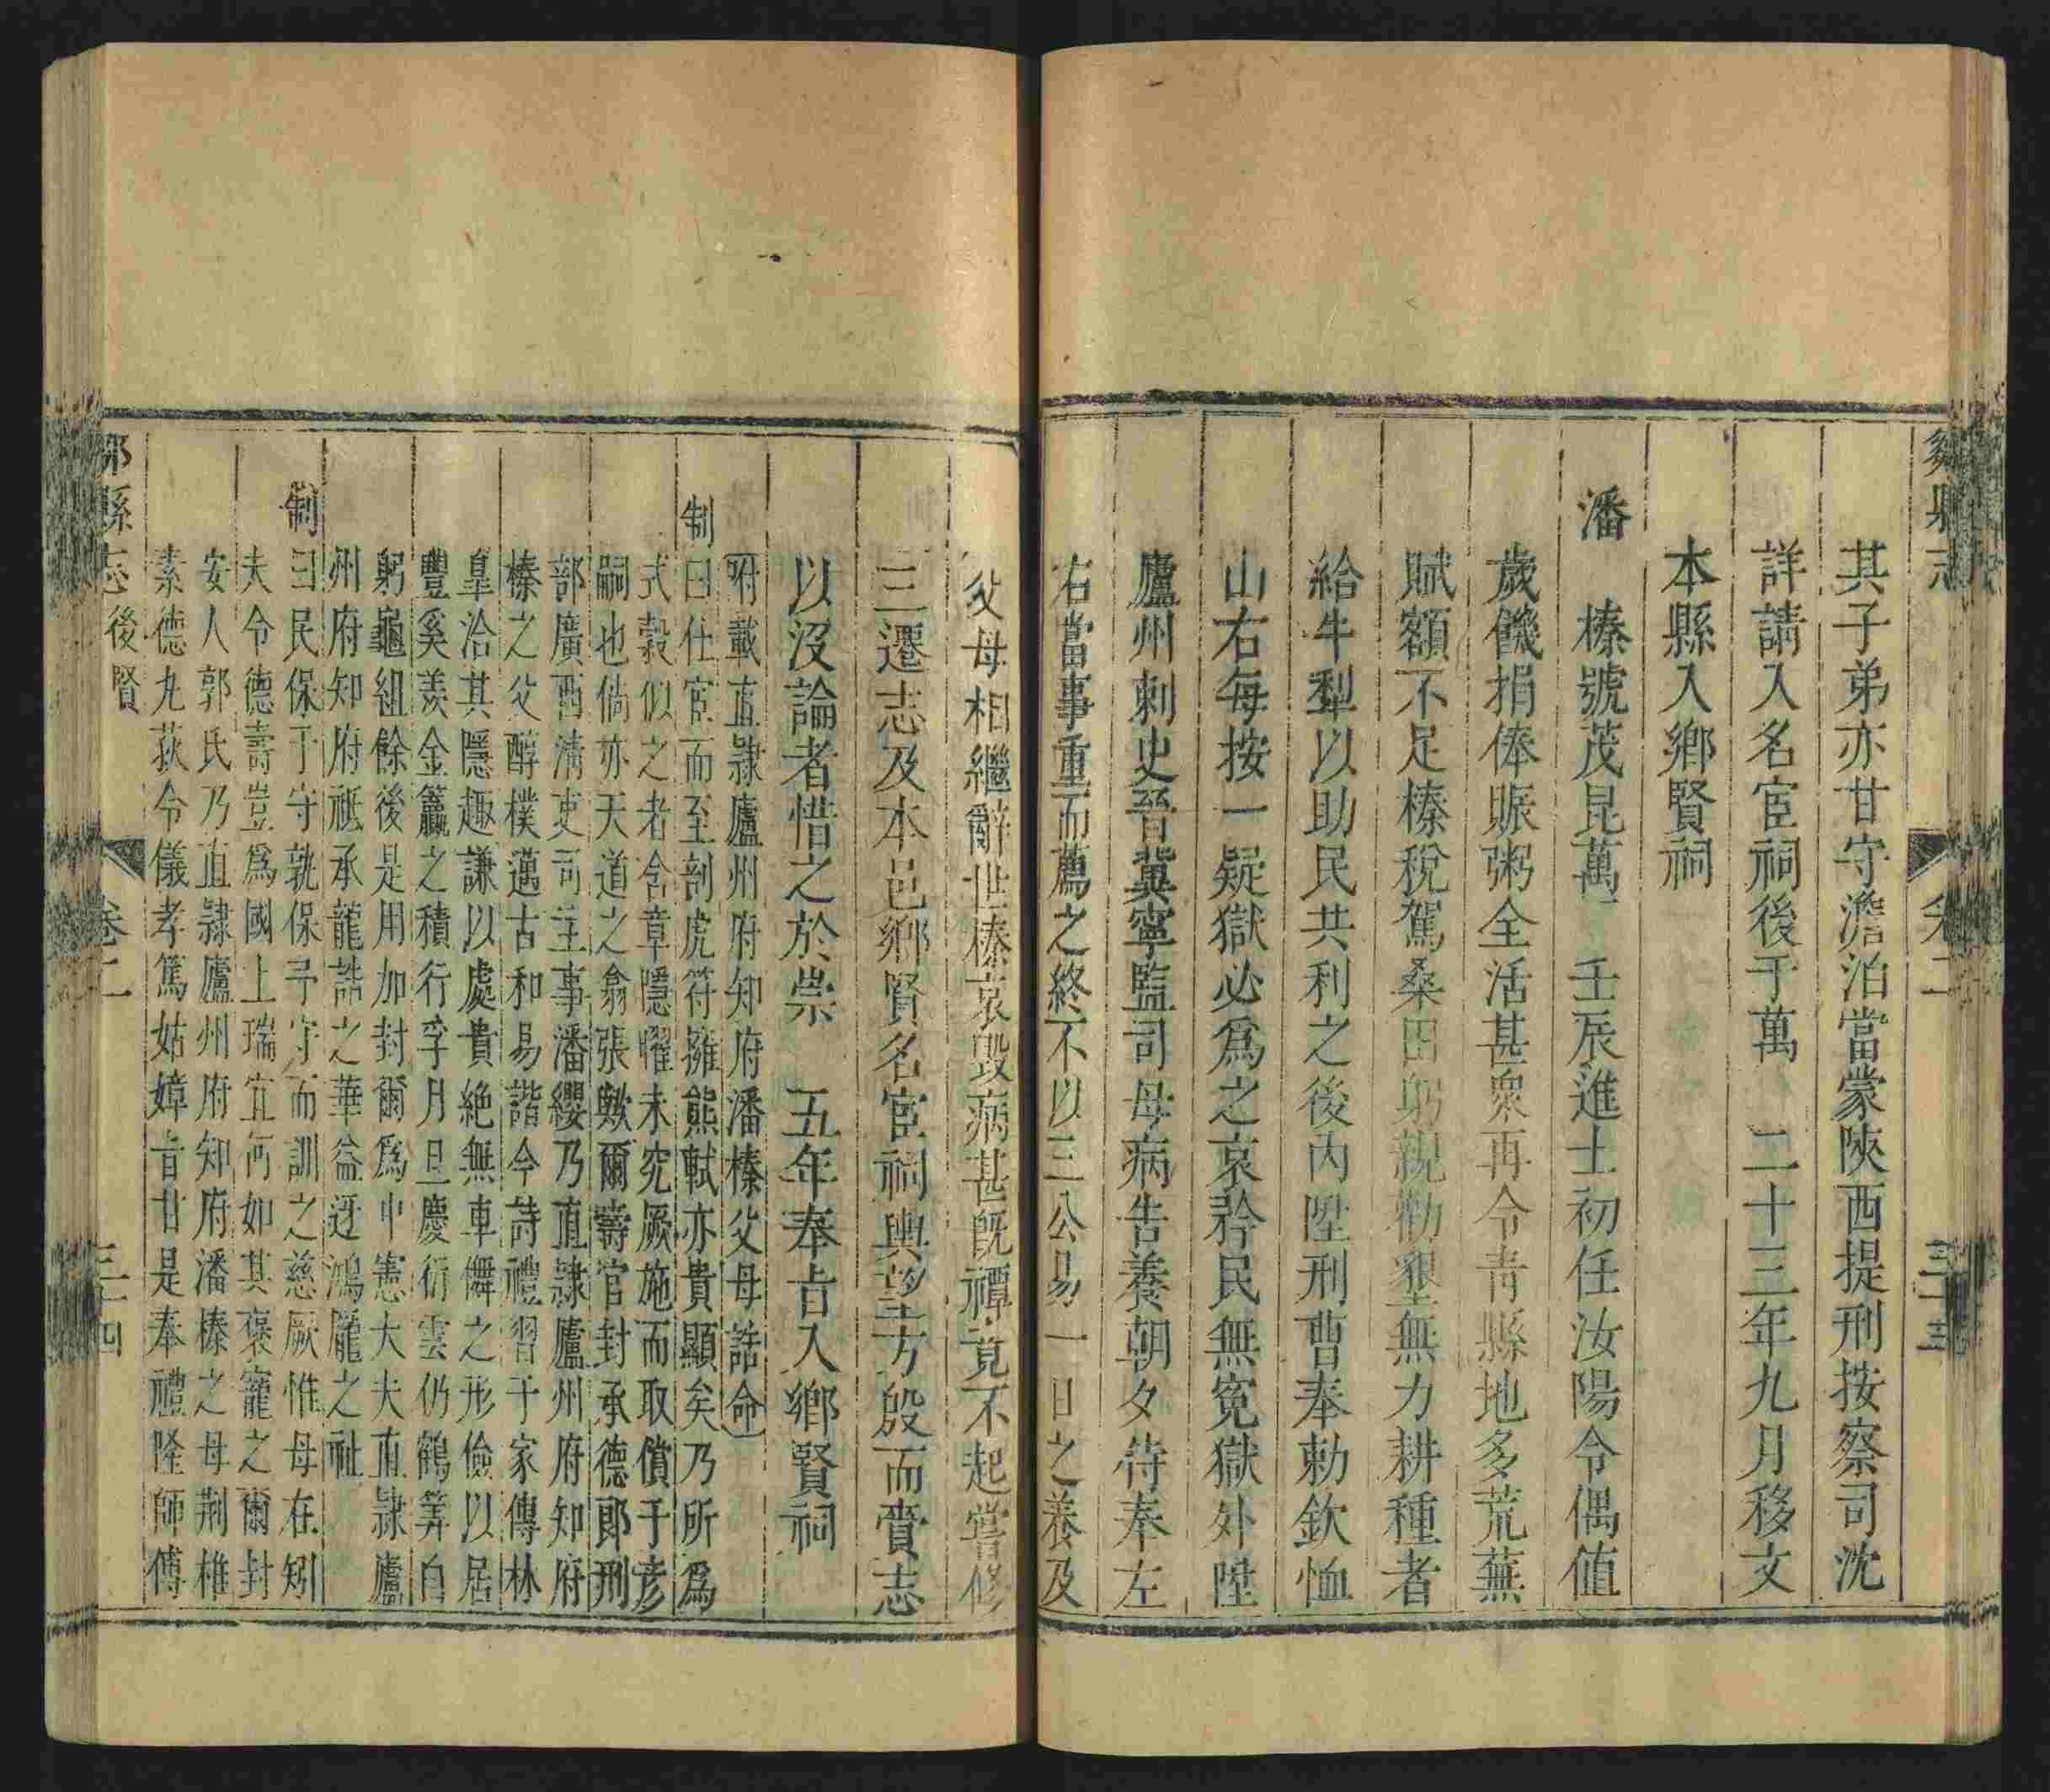 鄒縣志
卷二
三十三
其子弟亦甘守澹泊當蒙陜西提刑按察司沈
詳請入名宦祠後于萬 二十三年九月移文
本縣入鄉賢祠
潘 榛號茂昆萬 壬辰進士初任汝陽令偶值
歲饑捐俸賑粥全活甚衆再令青縣地多荒蕪
賦額不足榛稅駕桑田躬親勸墾無力耕種者
給牛犁以助民共利之後內陞刑曹奉勅欽恤
山右每按一疑獄必爲之哀矜民無冤獄外陞
廬州刺史晉冀寧監司母病告養朝夕侍奉左
右當事重而薦之終不以三公易一日之養及
父母相繼辭世榛哀毀病甚旣禫竟不起嘗修
三遷志及本邑鄉賢名宦祠輿望方殷而賫志
以沒論者惜之於崇 五年奉旨入鄉賢祠
附載直隸廬州府知府潘榛父母誥命
制曰仕宦而至剖虎符擁熊軾亦貴顯矣乃所爲
式榖似之者含章隱曜未究厥施而取償于彥
嗣也倘亦天道之翕張歟爾壽官封承德郎刑
部廣西淸吏司主事潘纓乃直隸廬州府知府
榛之父醇樸邁古和易諧今詩禮習于家傳林
臯洽其隱趣謙以處貴絶無車儛之形儉以居
豐奚羡金籯之積行孚月旦慶衍雲仍鶴筭自
躬龜組餘後是用加封爾爲中憲大夫直隸廬
州府知府祗承龍誥之華益迓鴻龎之祉
制曰民保于守孰保乎守而訓之慈厥惟母在矧
夫令德壽豈爲國上瑞宜何如其褒寵之爾封
安人郭氏乃直隸廬州府知府潘榛之母荆椎
素德九荻令儀孝篤姑嫜旨甘是奉禮隆師傅
鄒縣志 後賢
卷二
三十四